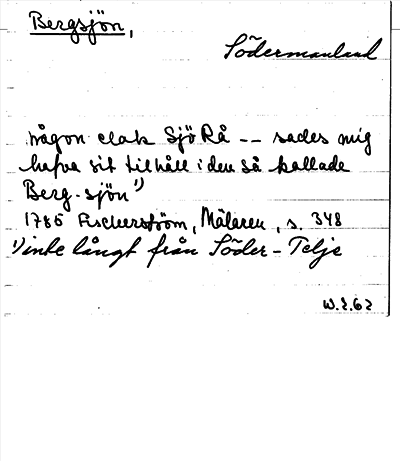 Bergsjön,
Södermanland
någon elak Sjö Rå -- sades mig
hafva sit tilhåll i den så kallade
Berg-sjön 1)
1785 Fischerström, Mälaren, s. 348
1) inte långt från Söder-Telje
W.S.62